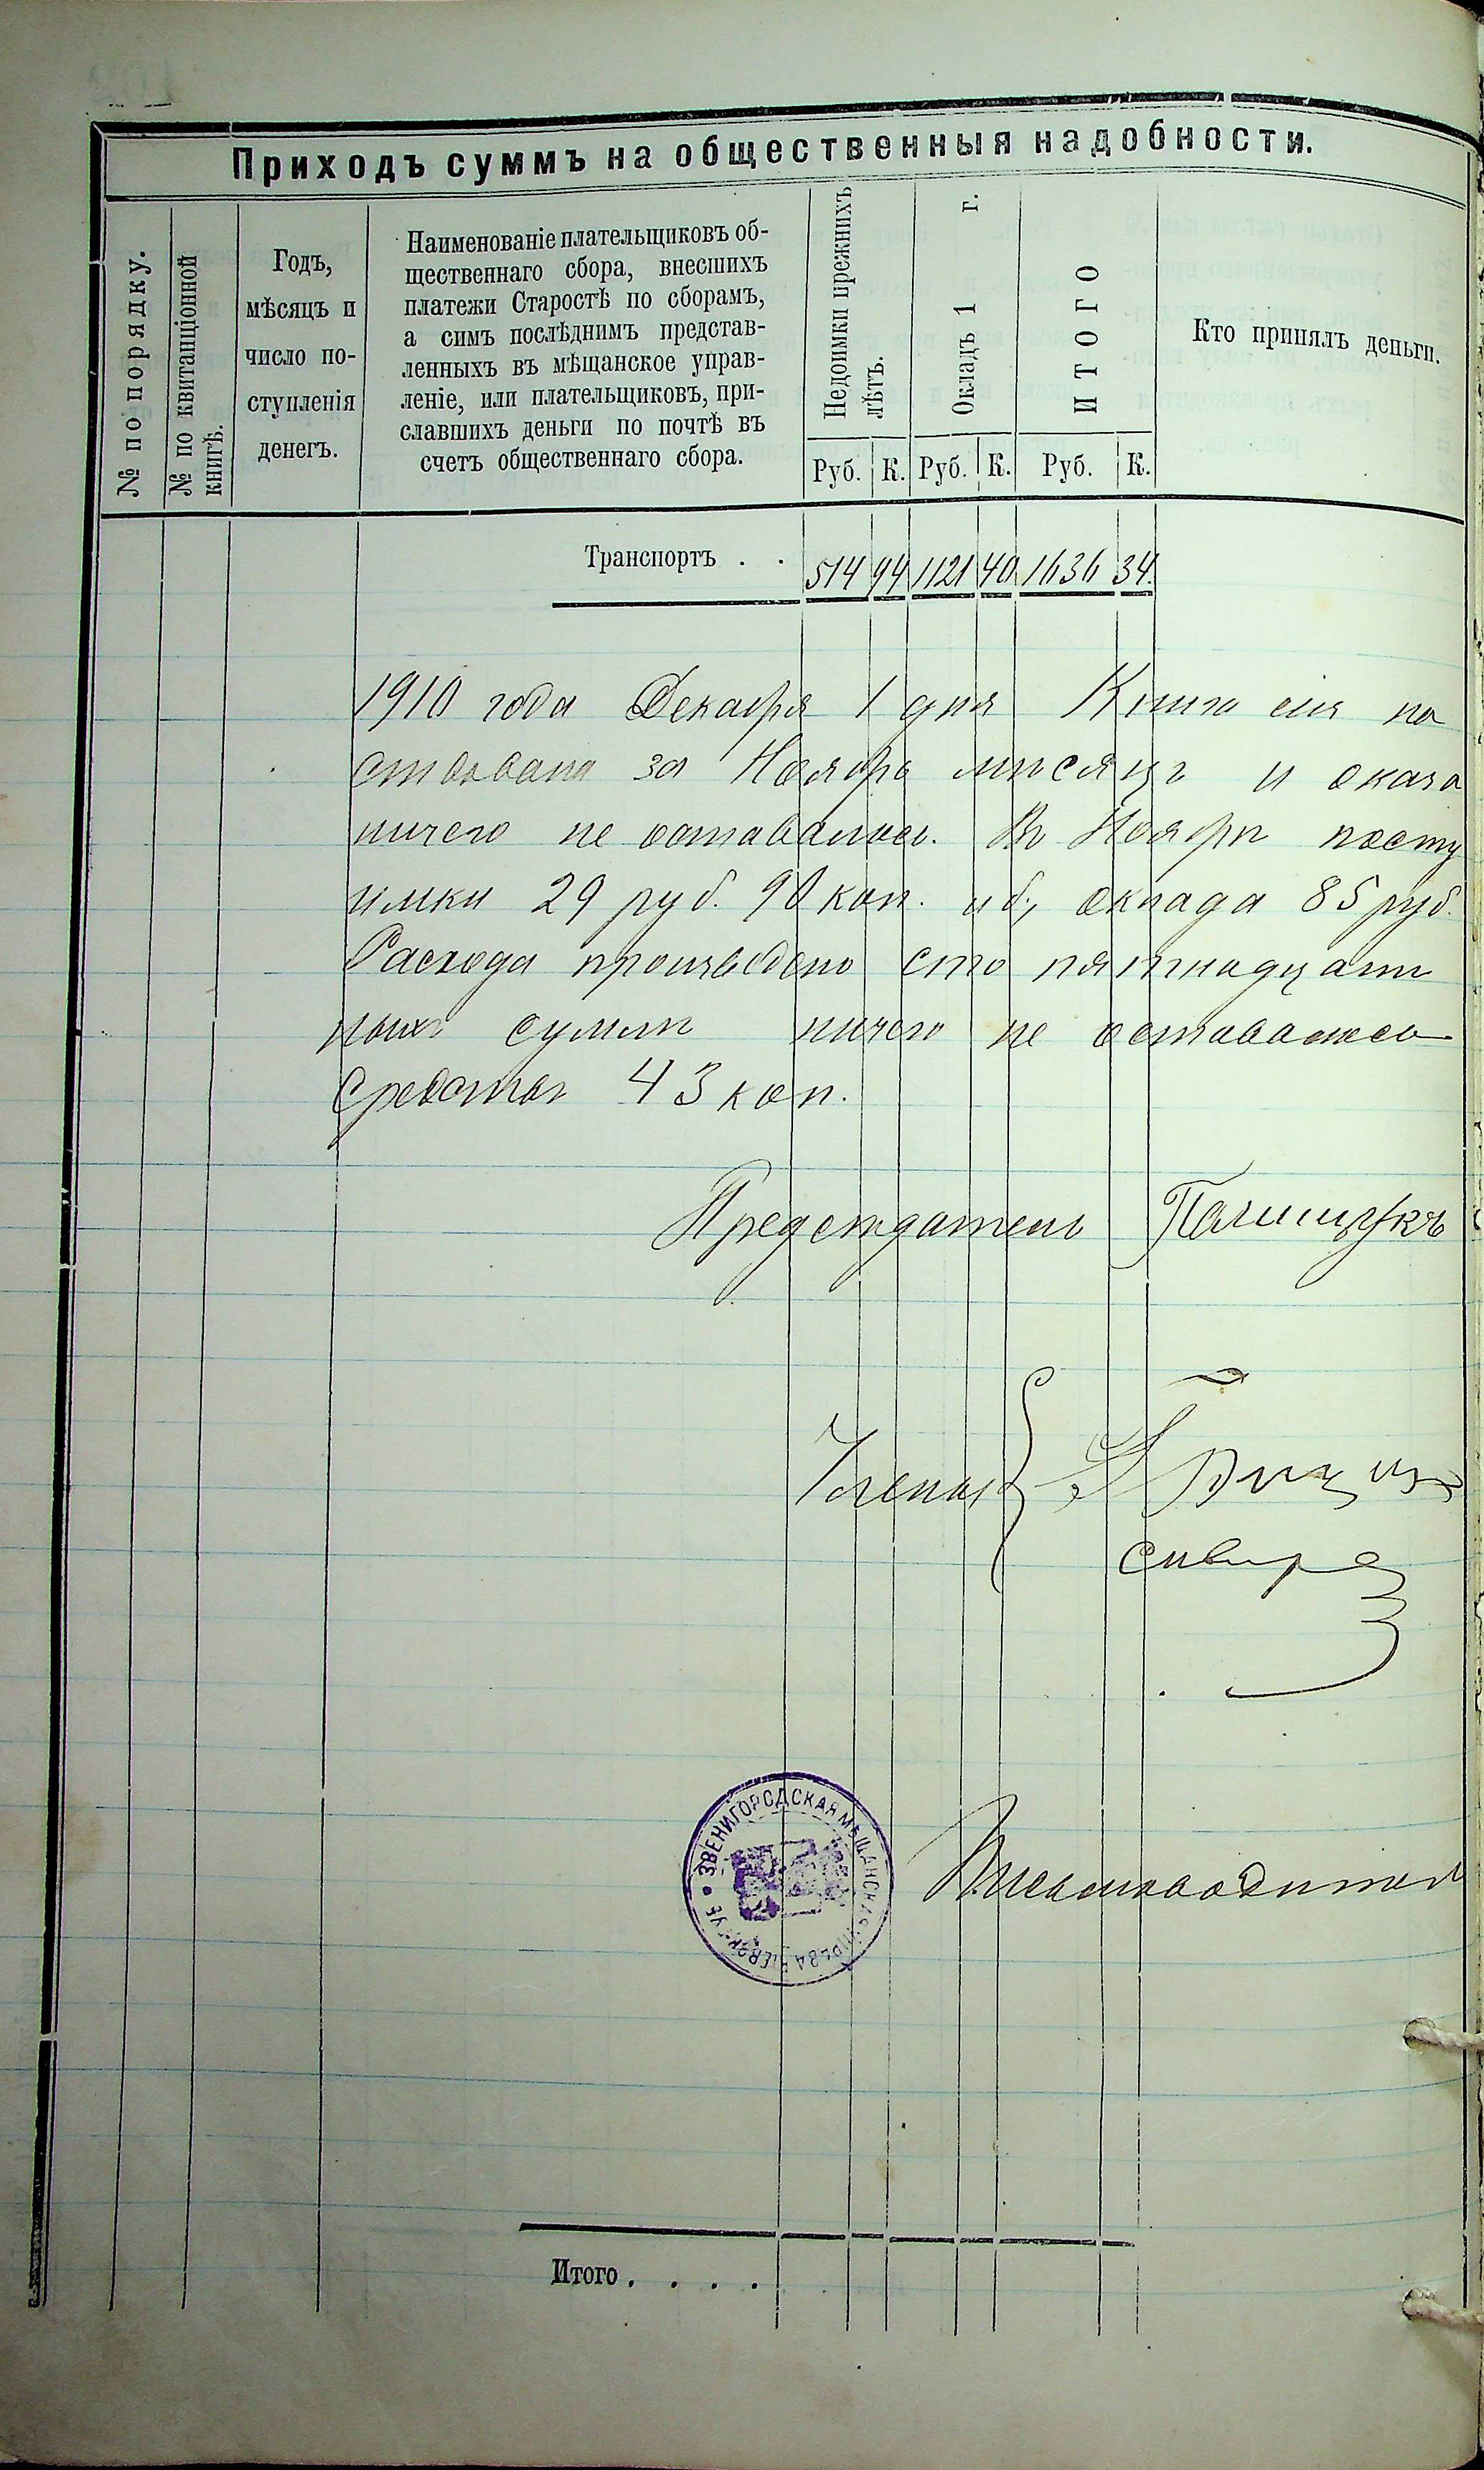 Приходъ суммъ на общественныя надобности.
№ по порядку.
№ по квитанціонной
книгѣ.
Годъ,
мѣсяцъ и
число по-
ступленія
денегъ.
Наименованіе плательщиковъ об-
щественнаго сбора, внесшихъ
платежи Старостѣ по сборамъ,
а симъ послѣднимъ представ-
ленныхъ въ мѣщанское управ-
леніе, или плательщиковъ, при-
славшихъ деньги по почтѣ въ
счетъ общественнаго сбора.
Недоимки прежнихъ
лѣтъ.
Окладъ 1 г.
ИТОГО
Кто принялъ деньги.
Руб. К. Руб. К. Руб. К.
Транспортъ . . 514 94 1121 40 1636 34.
1910 года Декабря 1 дня Книга сія на
за Ноябрь мѣсяцъ и оказа
ничего не оставалось. Въ Ноябрѣ посту
имки 29 руб. 90 коп. и б, оклада 85 руб.
Расхода произведено сто пятнадцать
ныхъ суммъ ничего не оставалось
средствъ 43 коп.
Предсѣдатель Полищукъ
Члены
ЗВЕНИГОРОДСКАЯ МѢЩАНСКАЯ УПРАВА КІЕВСК. ГУБ.
Письмоводитель
Итого . . . . .